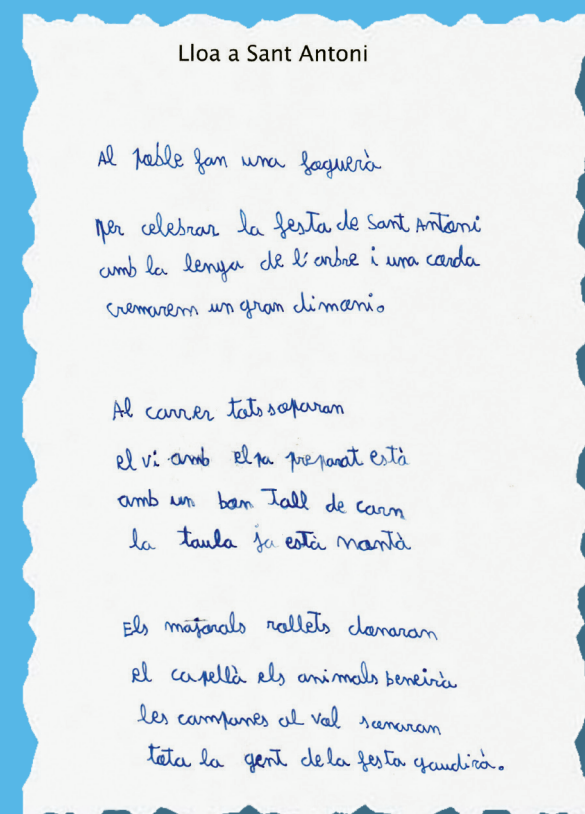 Lloa a Sant Antoni
Al poble fan una foguerà
per celebrar la festa de Sant Antoni
amb la lenya de l'arbre i una corda
cremarem un gran dimoni.
Al carrer tots soparan
el vi amb el pa preparat està
amb un bon Tall de carn
la taula ja està montà
Els majorals rollets donaran
el capellà els animals beneirà
les campanes al vol sonaran
tota la gent de la festa gaudirà.